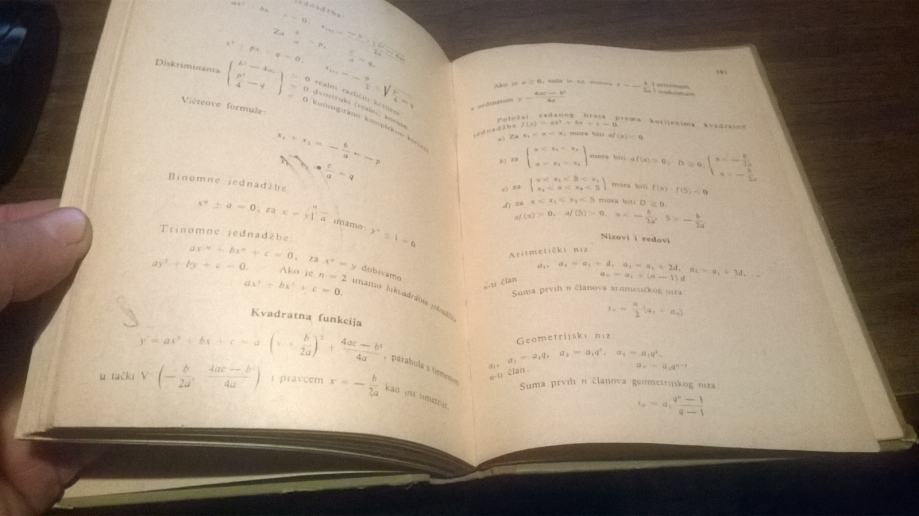 jednadžbe:
Za
x² + px + q = 0,
Diskriminanta { b² — 4ac
p²/4 — q } > 0 realni različiti korijeni
= 0 dvostruki (realni) korijen
< 0 konjugirano kompleksni korijeni
Vièteove formule:
x₁ + x₂ = — b/a = — p
c/a = q
Binomne jednadžbe.
xⁿ ± a = 0, za
imamo: yⁿ ± 1 = 0
Trinomne jednadžbe:
ax²ⁿ + bxⁿ + c = 0, za xⁿ = y dobivamo
ay² + by + c = 0. Ako je n = 2 imamo bikvadratnu jednadžbu
ax⁴ + bx² + c = 0.
Kvadratna funkcija
y = ax² + bx + c = a (x + b/2a)² + 4ac — b²/4a, parabola s tjemenom
u tački V (— b/2a, 4ac — b²/4a) i pravcem x = — b/2a kao
Ako je
s ordinatom y = 4ac — b²/4a
Položaj zadanog broja prema korijenima kvadratne
jednadžbe f(x) = ax² + bx + c = 0.
a) Za x₁ < α < x₂ mora biti af(α) < 0
b) za { α < x₁ < x₂
mora biti af(α) > 0, D ≥ 0, { α < — b/2a
α > — b/2a
c) za
mora biti f(α) · f(β) < 0
d) za α < x₁ < x₂ < β mora biti D ≥ 0.
af(α) > 0, af(β) > 0, α < — b/2a, β > — b/2a
Nizovi i redovi
Aritmetički niz
a₁, a₂ = a₁ + d, a₃ = a₁ + 2d, a₄ = a₁ + 3d, ...
n-ti član aₙ = a₁ + (n — 1) d
Suma prvih n članova aritmetičkog niza
sₙ = n/2 (a₁ + aₙ)
Geometrijski niz
a₁, a₂ = a₁q, a₃ = a₁q², a₄ = a₁q³.
n-ti član aₙ = a₁qⁿ⁻¹
Suma prvih n članova geometrijskog niza
sₙ = a₁ qⁿ — 1/q — 1